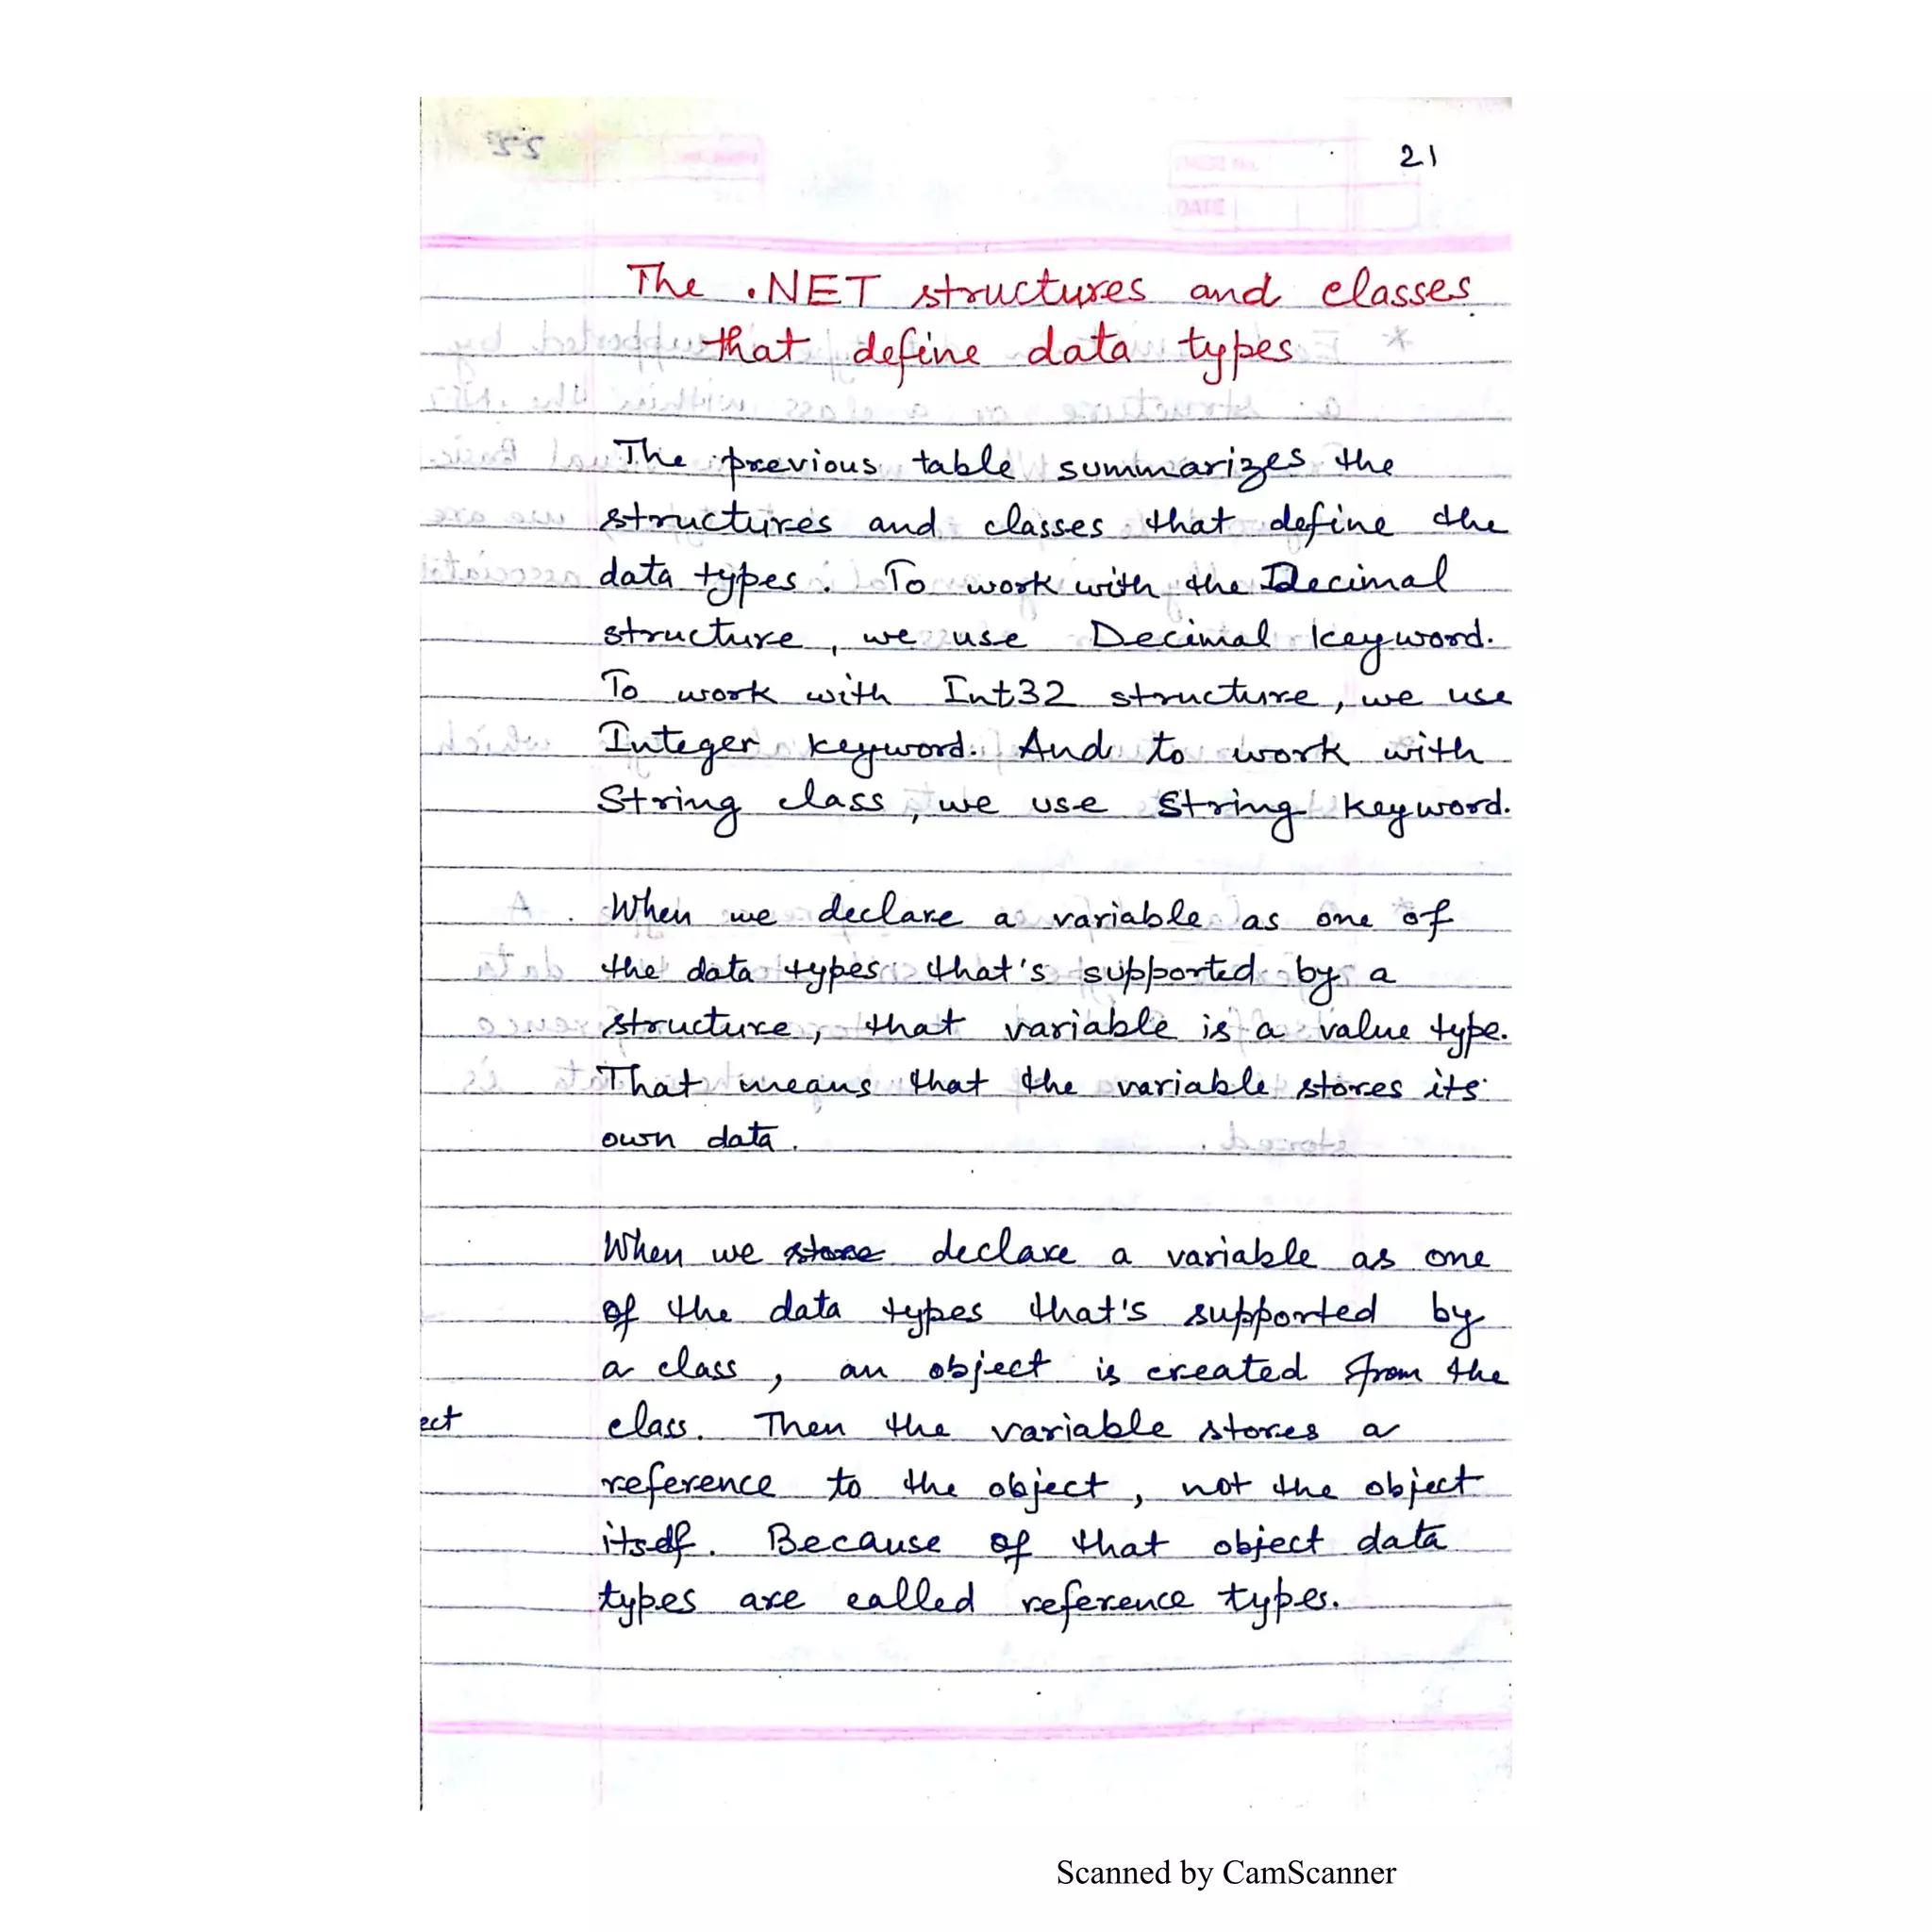 21
The .NET structures and classes
that define data types
The previous table summarizes the
structures and classes that define the
data types. To work with the Decimal
structure, we use Decimal keyword.
To work with Int32 structure, we use
Integer keyword. And to work with
String class, we use String keyword.
When we declare a variable as one of
the data types that's supported by a
structure, that variable is a value type.
That means that the variable stores its
own data.
When we store declare a variable as one
of the data types that's supported by
a class, an object is created from the
ect
class. Then the variable stores a
reference to the object, not the object
itself. Because of that object data
types are called reference types.
Scanned by CamScanner